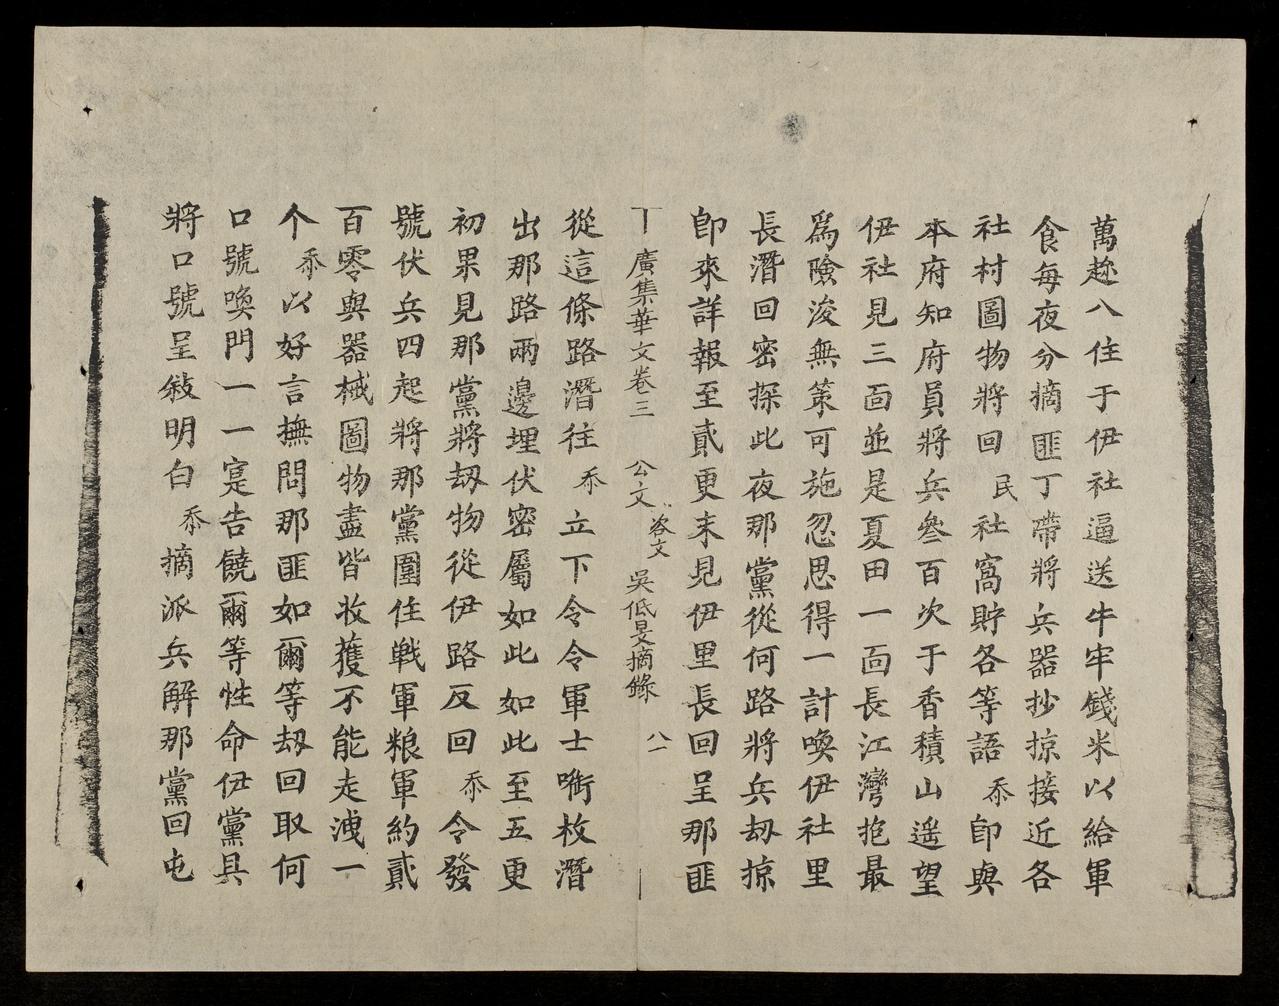 萬趂八住于伊社逼送牛牢錢米以給軍
食每夜分摘匪丁帶將兵器抄掠接近各
社村圖物將回民社窩貯各等語忝卽與
本府知府員將兵叄百次于香積山遥望
伊社見三面並是夏田一面長江灣抱最
爲險浚無策可施忽思得一計喚伊社里
長潛回密探此夜那黨從何路將兵刼掠
卽來詳報至貳更末見伊里長回呈那匪
廣集華文卷三 公文 咨文 吳低旻摘錄 八一
從這條路潛往忝立下令令軍士啣枚潛
出那路兩邊埋伏密屬如此如此至五更
初果見那黨將刼物從伊路反回忝令發
號伏兵四起將那黨圍住戦軍粮軍約貳
百零與器械圖物盡皆收獲不能走洩一
个忝以好言撫問那匪如爾等刼回取何
口號喚門一一寔告饒爾等性命伊黨具
將口號呈敍明白忝摘派兵解那黨回屯